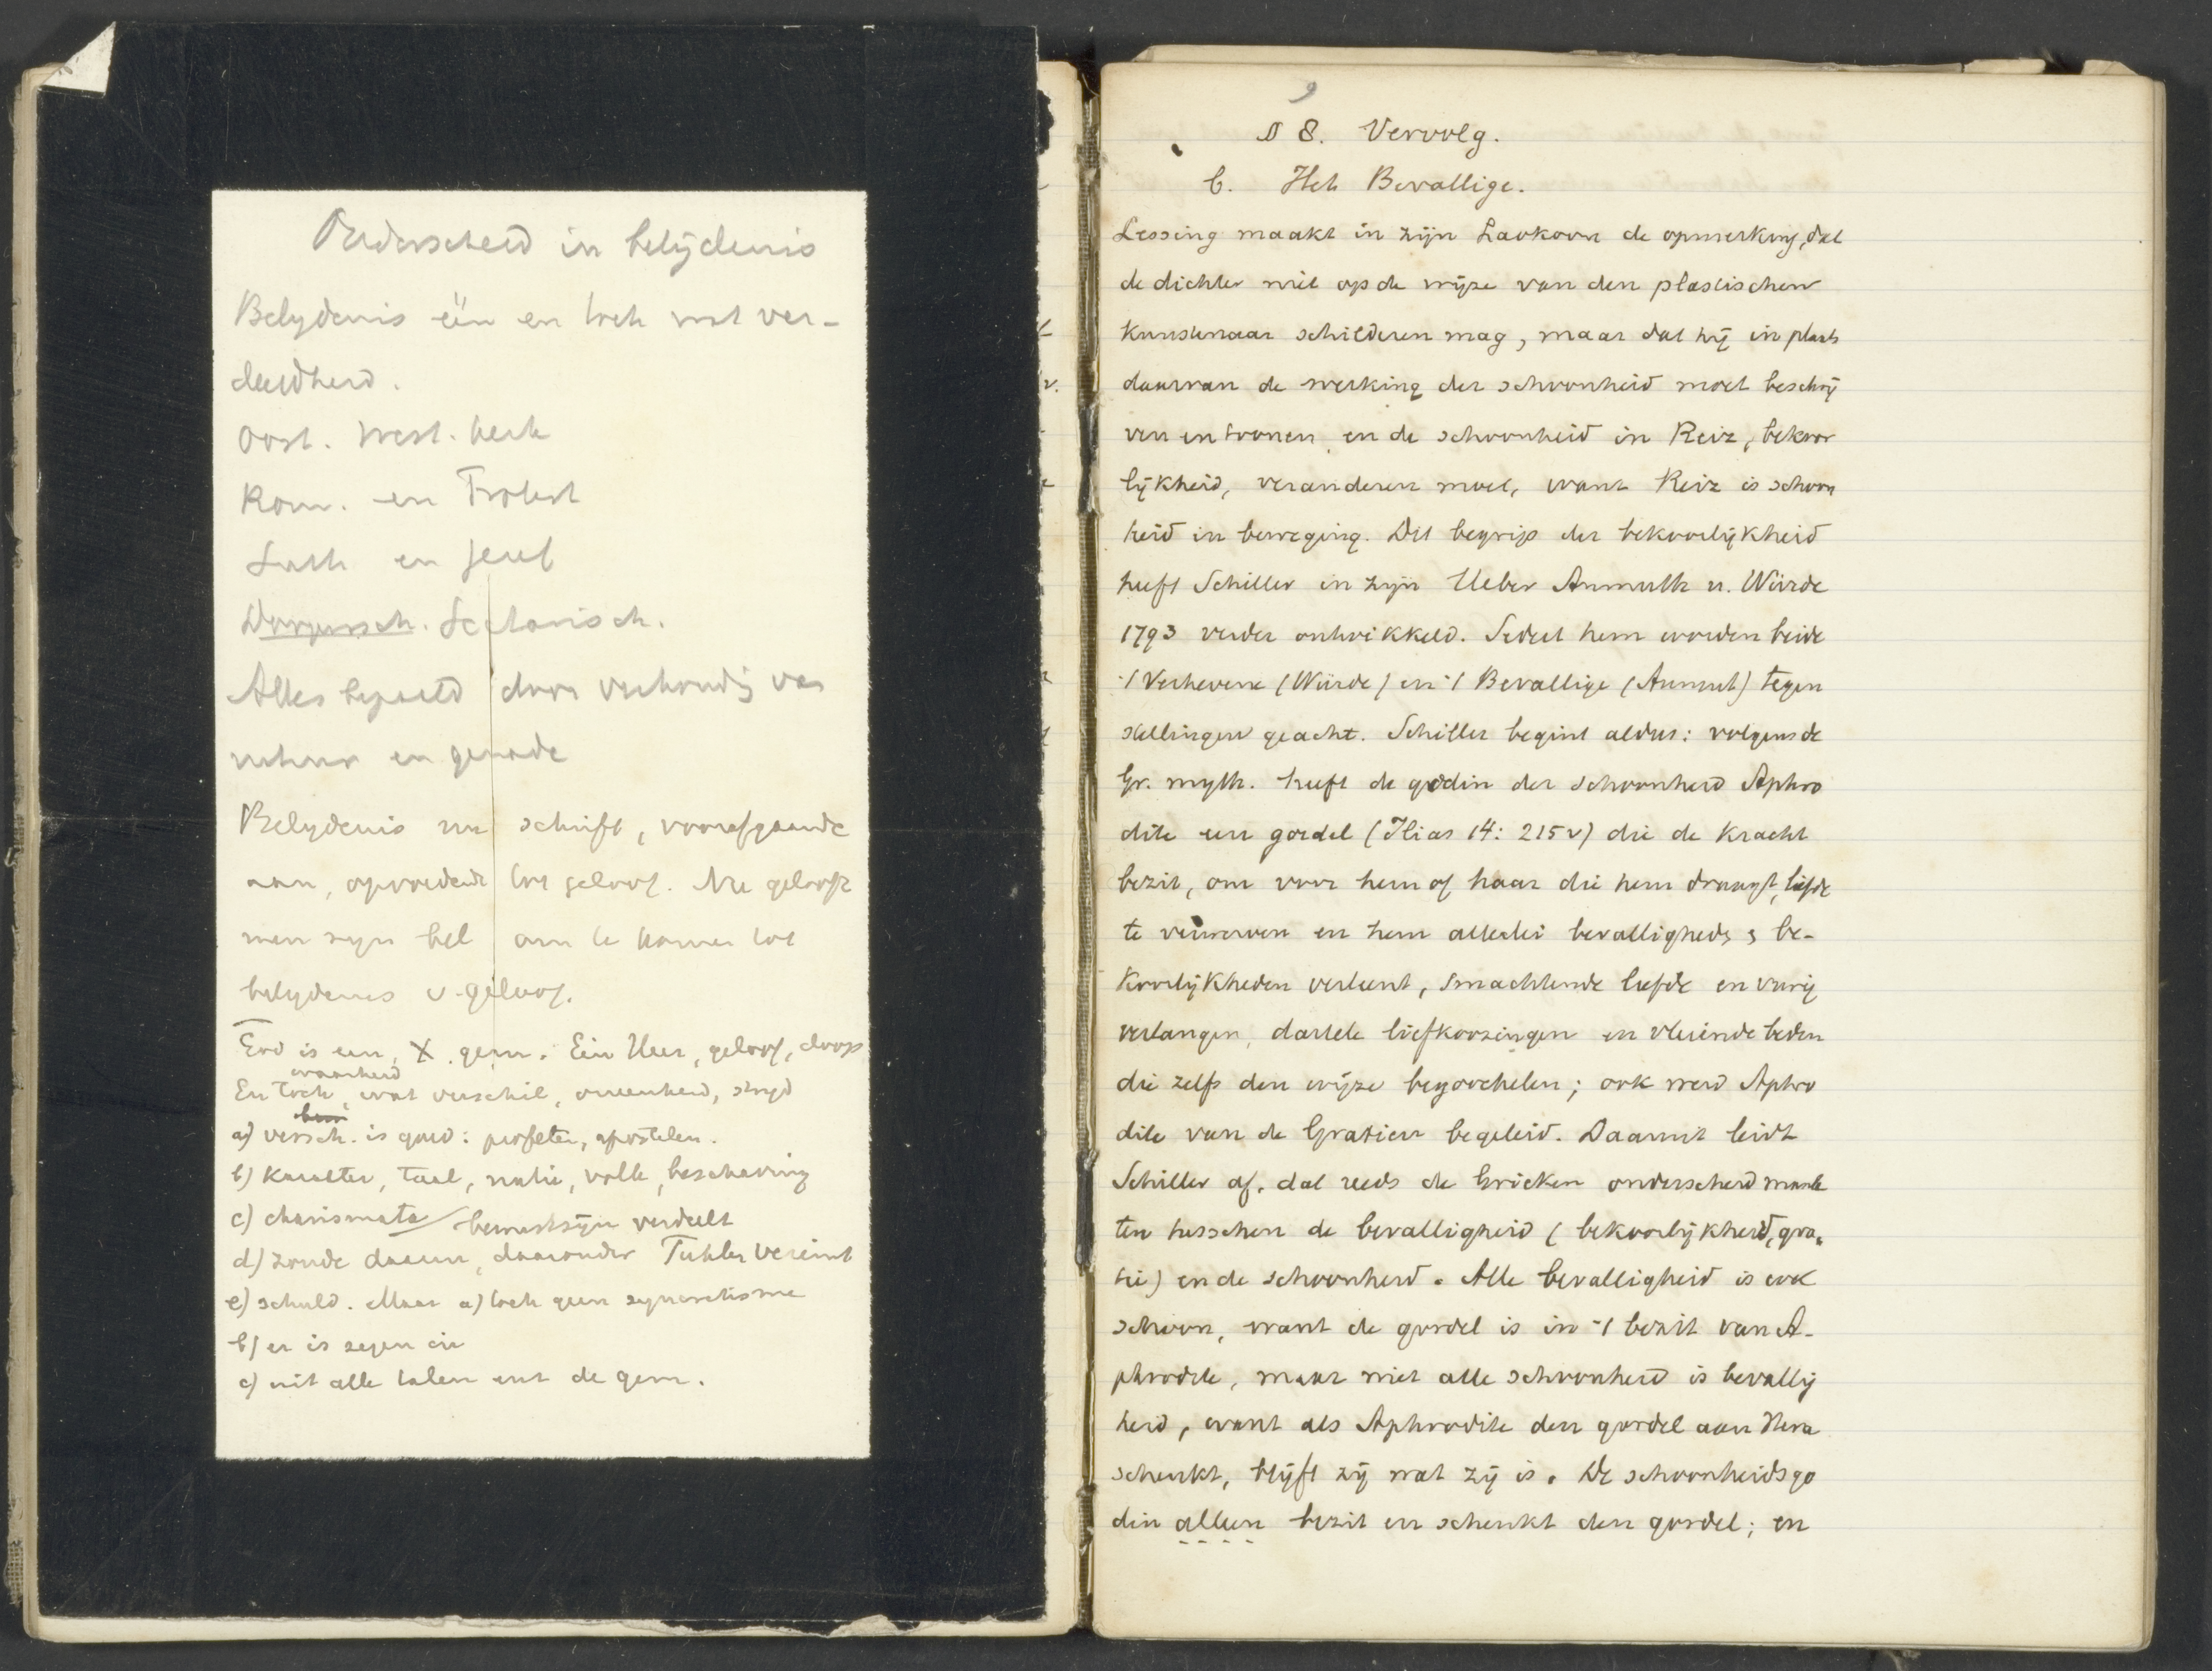 Onderscheid in belijdenis
Belydenis één en toch wat ver-
deeldheid.
Oost. West. kerk
Rom. en Protest
Luth en Geref
Doopersch. Sectarisch.
Alles bepaald door verhoudg van
natuur en genade
Belydenis na schrift, voorafgaande
aan, opvoedende tot geloof. Nu gelooft
men zyn bel om te komen tot
belydenis v. geloof.
God is een, X. gem. Een Heer, geloof, doop
waarheid
En toch, wat verschil, oneenheid, strijd
a) versch. is goed: profeten, apostelen.
b) karakter, taal, natie, volk, beschaving
c) charismata bewustzijn verdeelt
d) zonde daarin, daaronder
e) schuld. Maar a) toch geen syncretisme
b) er is zegen in
c) uit alle talen enz de gem.
9
§ 8. Vervolg.
b. Het Bevallige.
Lessing maakt in zijn Laokoon de opmerking, dat
de dichter niet op de wijze van den plastischen
Kunstenaar schilderen mag, maar dat hij in plaats
daarvan de werking der schoonheid moet beschrij
ven en toonen en de schoonheid in Reiz, bekoor
lijkheid, veranderen moet, want Reiz is schoon
heid in beweging. Dit begrip der bekoorlijkheid
heeft Schiller in zijn Ueber Anmuth u. Würde
1793 verder ontwikkeld. Sedert hem worden beide
't Verhevene (Würde) en 't Bevallige (Anmut) tegen
stellingen geacht. Schiller begint aldus: volgens de
Gr. myth. heeft de godin der schoonheid Aphro
dite een gordel (Ilias 14: 215 v) die de kracht
bezit, om voor hem of haar die hem draagt, liefde
te verwerven en hem allerlei bevalligheds & be-
koorlijkheden verleent, smachtende liefde en vurig
verlangen, dartele liefkoozingen en vleiende beden
die zelfs den wijze begoochelen; ook werd Aphro
dite van de Gratien begeleid. Daaruit leidt
Schiller af, dat reeds de Grieken onderscheid maak
ten tusschen de bevalligheid (bekoorlijkheid, gra-
tie) en de schoonheid. Alle bevalligheid is ook
schoon, want de gordel is in 't bezit van A-
phrodite, maar niet alle schoonheid is bevallig
heid, want als Aphrodite den gordel aan Hera
schenkt, blijft zij wat zij is. De schoonheidsgo
din alleen bezit en schenkt den gordel; en